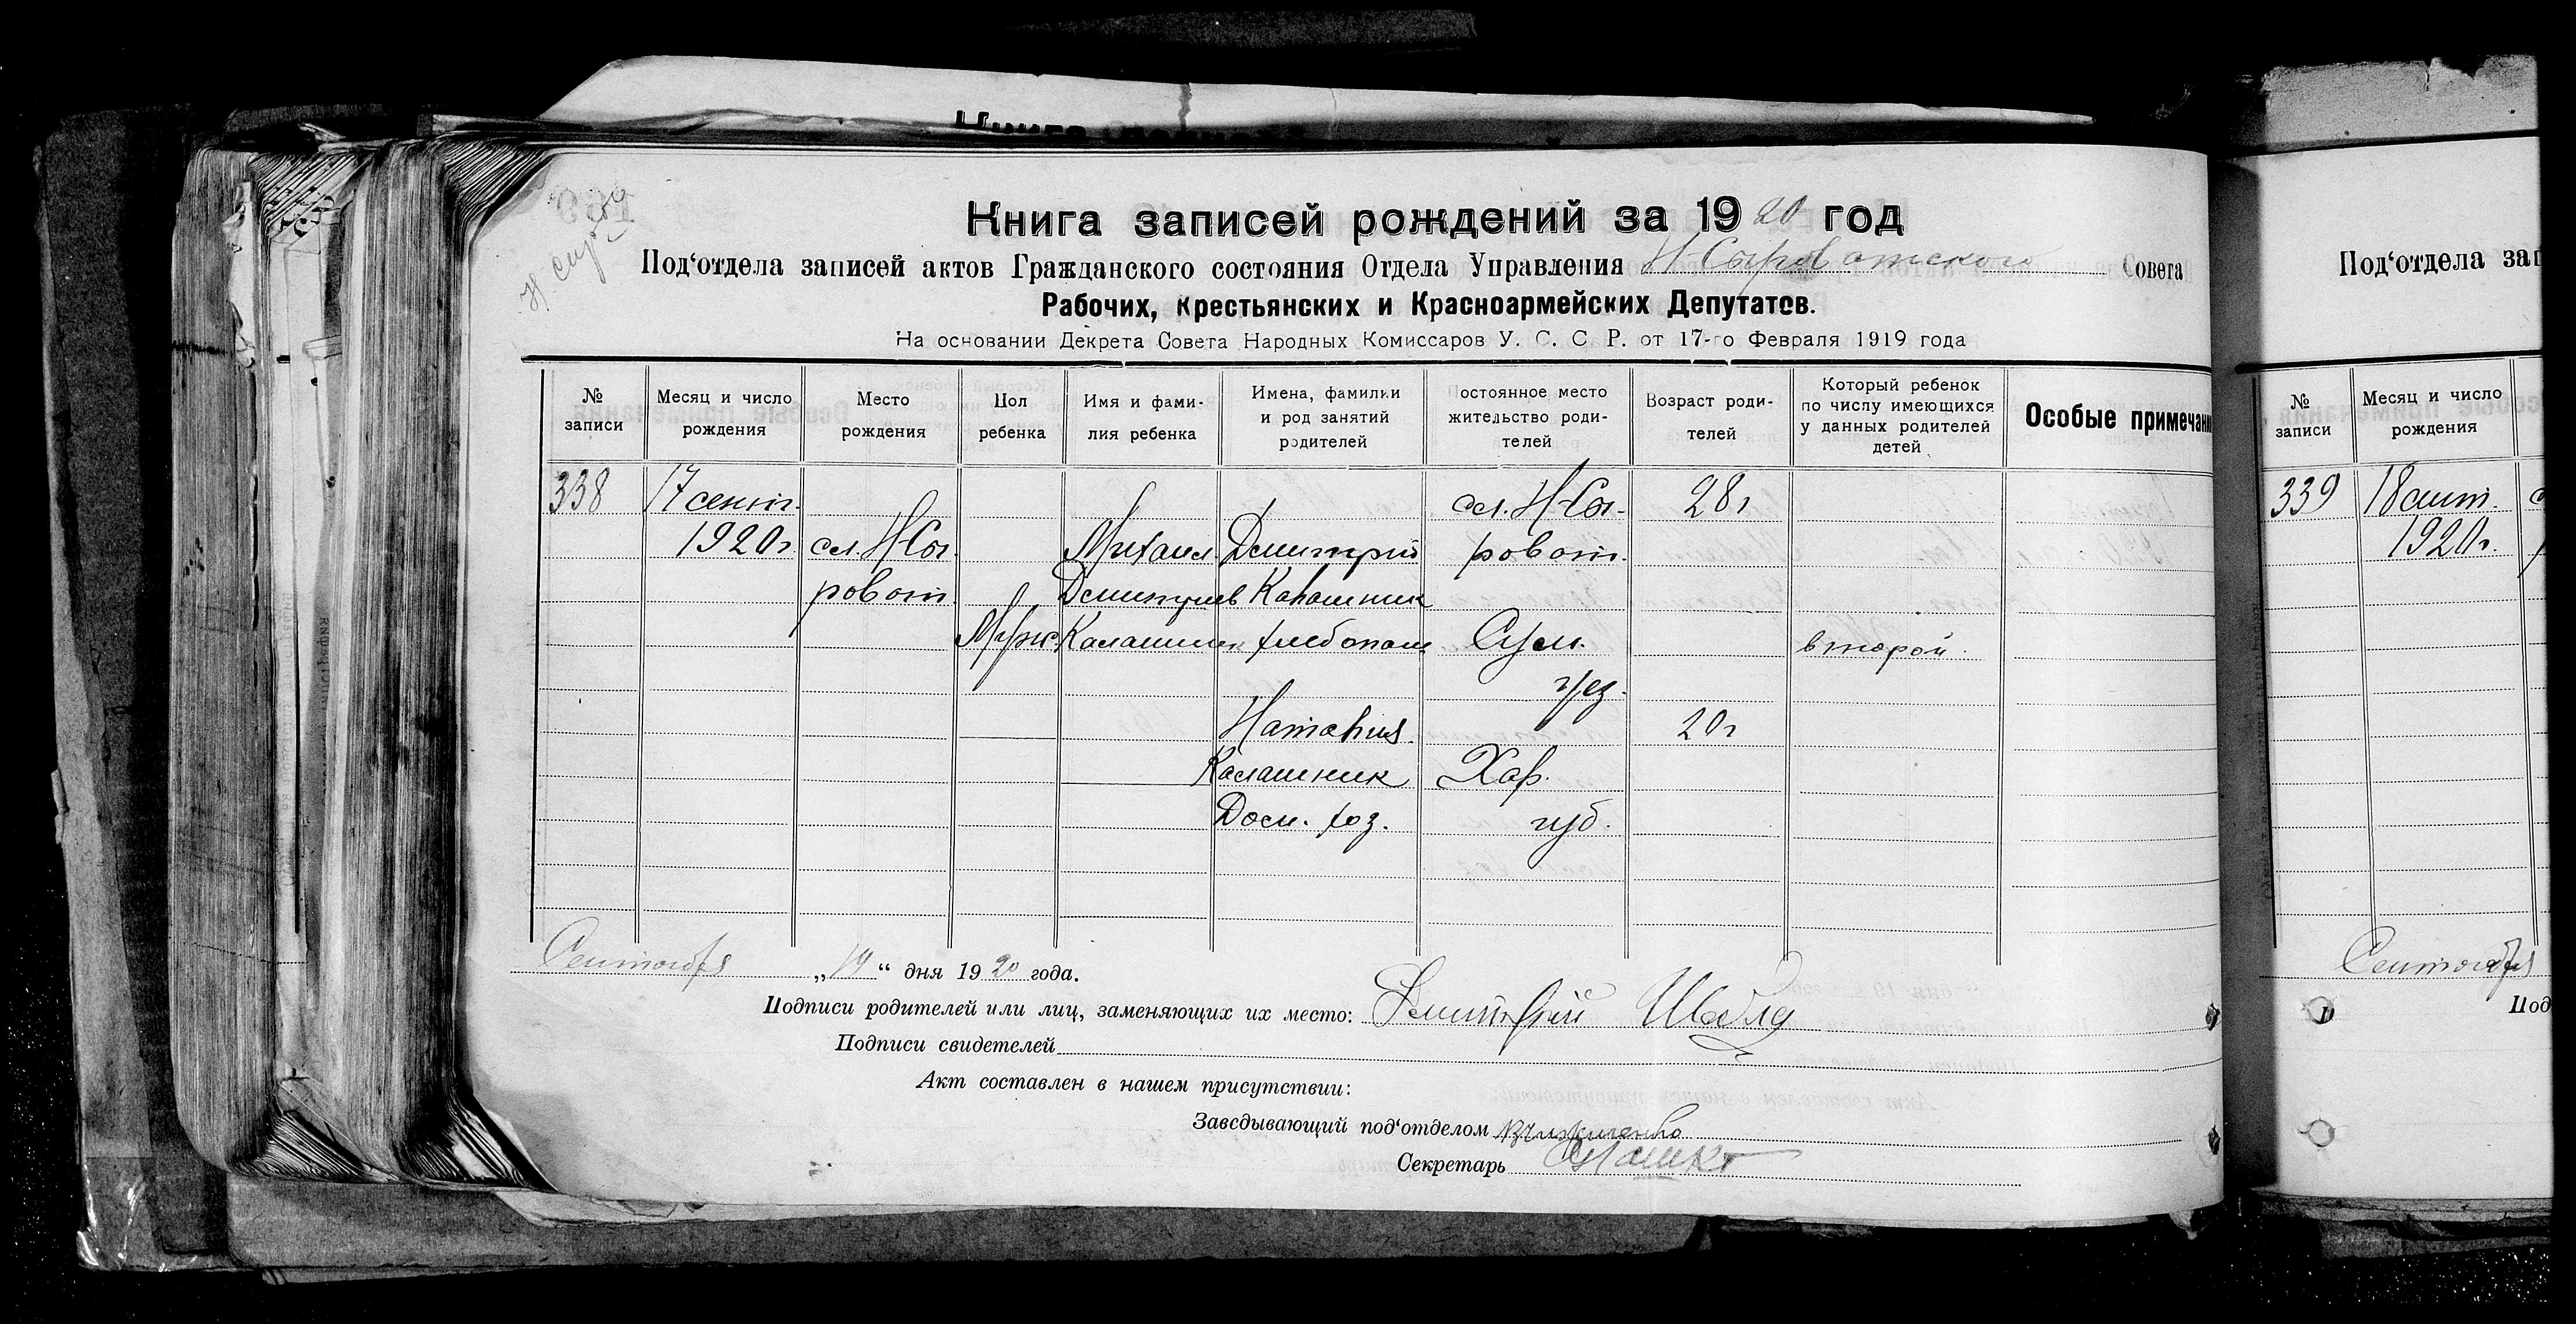 Книга записей рождений за 1920 год
Под‘отдела записей актов Гражданского состояния Отдела Управления Н-Сыроватского Совета
Рабочих, крестьянских и Красноармейских Депутатов.
На основании Декрета Совета Народных Комиссаров У. С. С. Р. от 17-го Февраля 1919 года
№ записи
Месяц и число рождения
Место рождения
Пол ребенка
Имя и фами-
лия ребенка
Имена, фамилии
и род занятий
родителей
Постоянное место
жительство роди-
телей
Возраст роди-
телей
Который ребенок
по числу имеющихся
у данных родителей
детей
Особые примечани
338
17 сент.
1920г.
сл. Н-Сы-
роват.
Муж
Михаил
Дмитриев
Калашник
Дмитрий
Калашник
хлебопаш.
Наталия
Калашник
Дом. хоз.
сл. Н-Сы-
роват.
Сум.
уез.
Хар.
губ.
28 г
20 г
второй.
Сентября „19“ дня 1920 года.
Подписи родителей или лиц, заменяющих их место: Дмитрий
Подписи свидетелей
Акт составлен в нашем присутствии:
Заведывающий под‘отделом
Секретарь
Под‘отдела зап
№ записи
Месяц и число рождения
339
18 сент.
1920г.
Сентября
Под